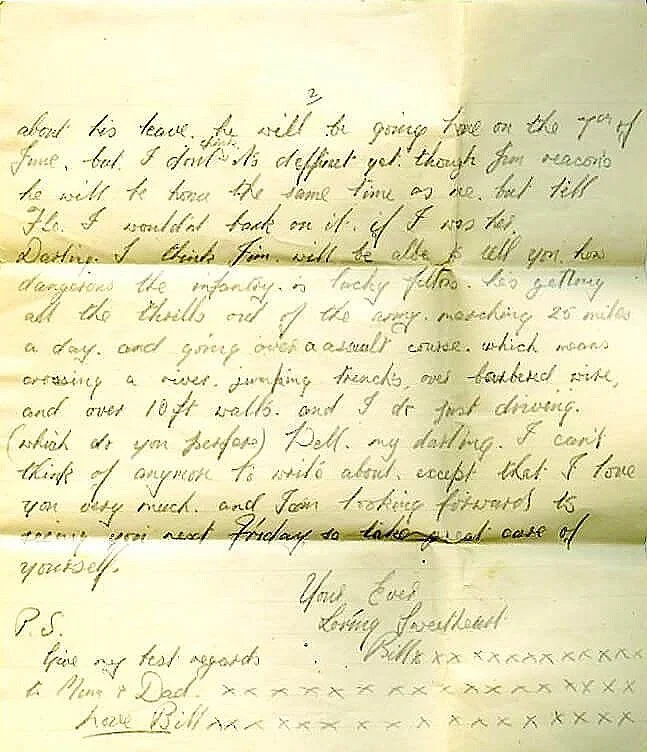 2
about his leave. he will be going home on the 7th of
June. but. I don't think its deffinet yet. though Jim reacons
he will be home the same time as me. but tell
Flo. I wouldnt bank on it. if I was her.
Darling. I think Jim. will be able to tell you how
dangerous the infantry. is lucky fellow. hes getting
all the thrills out of the army. marching 25 miles
a day. and going over a assault course. which means
crossing a river. jumping trenchs, over barbered wire,
and over 10 ft walls. and I do just driving.
(which do you perfere) Well. my darling. I can't
think of anymore to write about. except that I love
you very much. and I am looking forward to
seeing you next Friday so take great care of
yourself.
Your Ever
Loving Sweetheart
Bill x x x x x x x x x x x x x
P.S.
Give my best regards
to Mum & Dad. x x x x x x x x x x x x x x x x
Love Bill x x x x x x x x x x x x x x x x